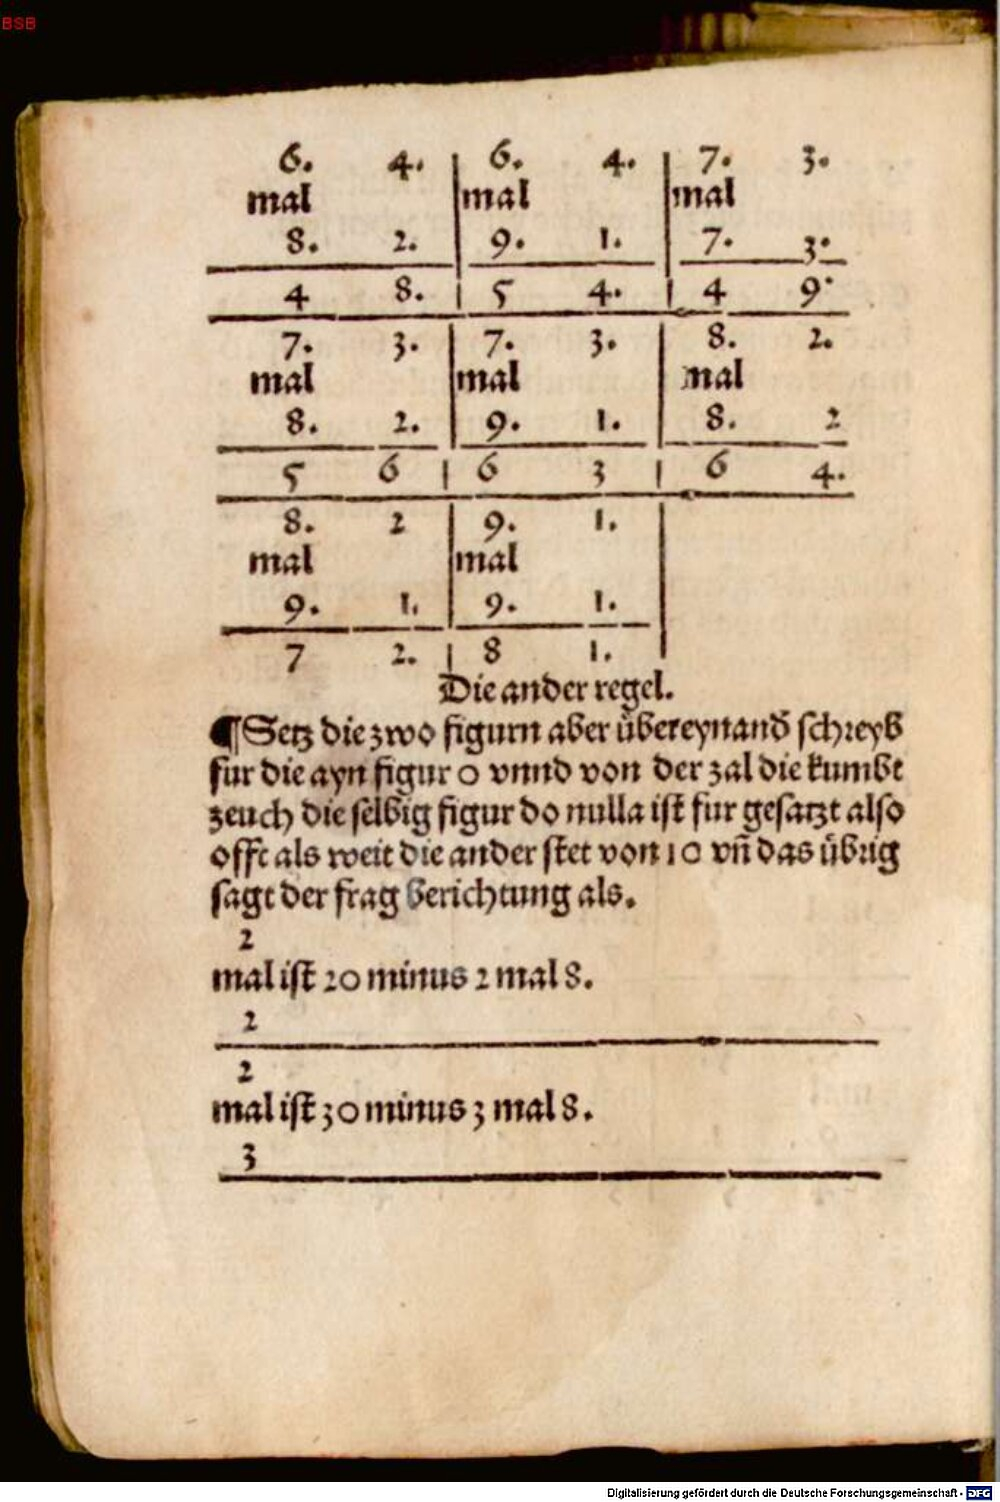 BSB
6. 4. | 6. 4. | 7. 3.
mal | mal | mal
8. 2. | 9. 1. | 7. 3.
4 8. | 5 4. | 4 9.
7. 3. | 7. 3. | 8. 2.
mal | mal | mal
8. 2. | 9. 1. | 8. 2
5 6 | 6 3 | 6 4.
8. 2 | 9. 1. |
mal | mal
9. 1. | 9. 1.
7 2. | 8 1.
Die ander regel.
¶ Setz die zwo figurn aber übereynand̄ schreyb
fur die ayn figur 0 vnnd von der zal die kumbt
zeuch die selbig figur do nulla ist fur gesatzt also
offt als weit die ander stet von 10 vn̄ das übrig
sagt der frag berichtung als.
2
mal ist 20 minus 2 mal 8.
2
2
mal ist 30 minus 3 mal 8.
3
Digitalisierung gefördert durch die Deutsche Forschungsgemeinschaft - DFG